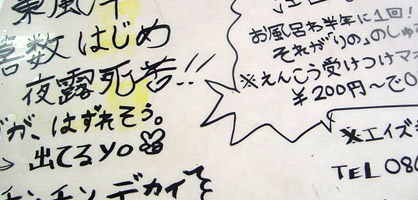 はじめ
夜露死苦!!
が、はずれそう。
→出てるyo
チンチンデカイ
お風呂わ半年に1回!
それが「りの」のしゅ
※えんこう受けつけマ
¥200円〜で
※エイズ
TEL 08